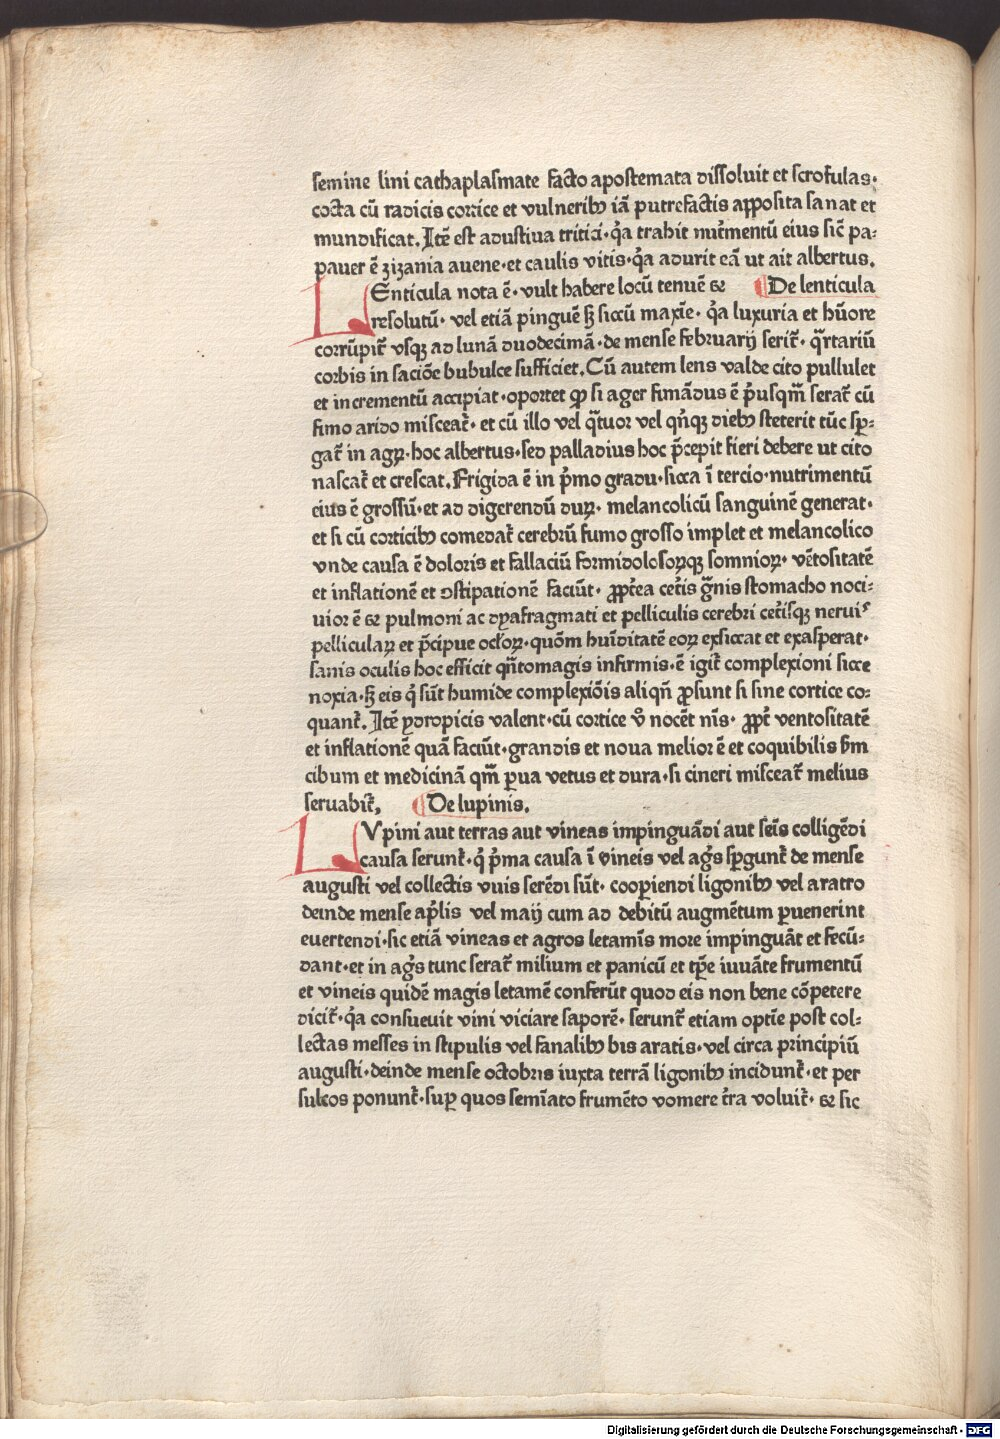 semine lini cathaplasmate facto apostemata dissoluit et scrofulas·
cocta cū radicis cortice et vulneribꝫ iā putrefactis apposita sanat et
mundificat. Itē est adustiua tritici· qͥa trahit nutͥmentū eius sic̄ pa⸗
pauer ē zizania auene· et caulis vitis· qͥa adurit eā ut ait albertus.
LEnticula nota ē· vult habere locū tenuē ⁊ ¶ De lenticula
resolutū· vel etiā pinguē sꝫ siccū maxīe· qͥa luxuria et hūore
corrūpit̄ vsqꝫ ad lunā duodecimā· de mense februarij serit̄· qͣrtariū
corbis in saciōe bubulce sufficiet. Cū autem lens valde cito pullulet
et incrementū accipiat· oportet ꝙ si ager fimādus ē pͥusqͣm̄ serat̄ cū
fimo arido misceat̄· et cū illo vel qͣtuor vel qͥnqꝫ diebꝫ steterit tūc sp̱⸗
gat̄ in agꝝ· hoc albertus· sed palladius hoc p̄cepit fieri debere ut cito
nascat̄ et crescat. Frigida ē in pͥmo gradu· sicca ī tercio· nutrimentū
eius ē grossū· et ad digerendū duꝝ· melancolicū sanguinē generat·
et si cū corticibꝫ comedat̄ cerebrū fumo grosso implet et melancolico
vnde causa ē doloris et fallaciū formidolosoꝝqꝫ somnioꝝ· vētositatē
et inflationē et ꝯstipationē faciūt· ꝓpt̄ea cet̄is gͣnis stomacho noci⸗
uior ē ⁊ pulmoni ac dyafragmati et pelliculis cerebri cet̄isqꝫ neruis
pelliculaꝝ et p̄cipue ocl̄oꝝ· quōm hūiditatē eoꝝ exsiccat et exasperat·
sanis oculis hoc efficit qn̄tomagis infirmis· ē igit̄ complexioni sicce
noxia· sꝫ eis qͥ sūt humide complexiōis aliqn̄ ꝓsunt si sine cortice co⸗
quant̄. Itē ydropicis valent· cū cortice vͦ nocēt nīs· ꝓpt̄ ventositatē
et inflationē quā faciūt· grandis et noua melior ē et coquibilis s̄m
cibum et medicinā qͣm̄ ꝑua vetus et dura· si cineri misceat̄ melius
seruabit̄. ¶ De lupinis.
LVpini aut terras aut vineas impinguādi aut seīs colligēdi
causa serunt̄· qͥ pͥma causa ī vineis vel agͥs sꝑgunt̄ de mense
augusti vel collectis vuis serēdi sūt· cooꝑiendi ligonibꝫ vel aratro
deinde mense apͥlis vel maij cum ad debitū augmētum ꝑuenerint
euertendi· sic etiā vineas et agros letamīs more impinguāt et fecū⸗
dant· et in agͥs tunc serat̄ milium et panicū et tꝑe iuuāte frumentū
et vineis quidē magis letamē conferūt quod eis non bene cōpetere
dicit̄· qͥa consueuit vini viciare saporē· serunt̄ etiam optīe post col⸗
lectas messes in stipulis vel fanalibꝫ bis aratis· vel circa principiū
augusti· deinde mense octobris iuxta terrā ligonibꝫ incidunt̄· et per
sulcos ponunt̄· suꝑ quos semīato frumēto vomere t̄ra voluit̄· ⁊ sic
Digitalisierung gefördert durch die Deutsche Forschungsgemeinschaft - DFG